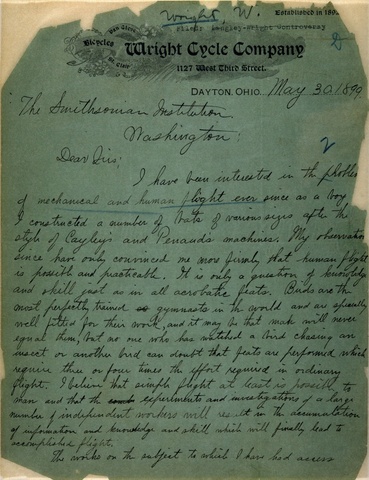 Wright, W.
Established in 189
Wright Controversy
Van Cleve
Bicycles
St. Clair
Wright Cycle Company
1127 West Third Street.
DAYTON, OHIO, May 30, 1899
The Smithsonian Institution
Washington;
2
Dear Sirs;
I have been interested in the problem
of mechanical and human flight ever since as a boy
I constructed a number of bats of various sizes after the
style of Cayley's and Penaud's machines. My observations
since have only convinced me more firmly that human flight
is possible and practicable. It is only a question of knowledge
and skill just as in all acrobatic feats. Birds are the
most perfectly trained gymnasts in the world and are specially
well fitted for their work, and it may be that man will never
equal them, but no one who has watched a bird chasing an
insect or another bird can doubt that feats are performed which
require three or four times the effort required in ordinary
flight. I believe that simple flight at least is possible to
man and that the experiments and investigations of a large
number of independent workers will result in the accumulation
of information and knowledge and skill which will finally lead to
accomplished flight.
The works on the subject to which I have had access